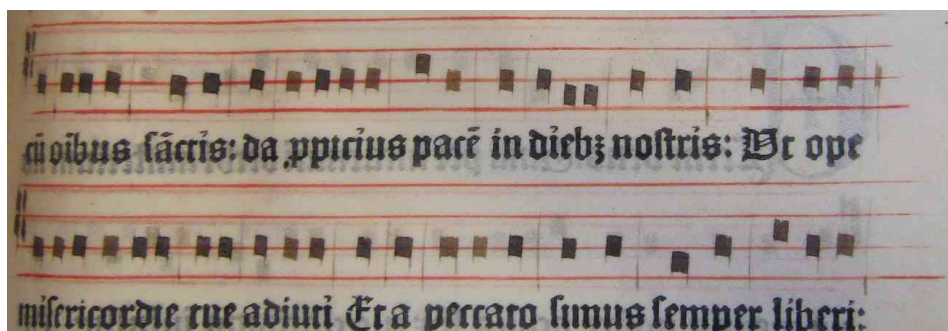 cū oībus sāctis: da ꝓpicius pacē in diebꝫ nostris: Ut ope
misericordie tue adiuti Et a peccato simus semper liberi: